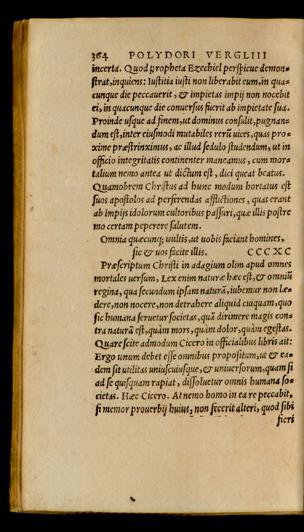 364 POLYDORI VERGLIII
incerta. Quod propheta Ezechiel perspicue demon-
strat, inquiens: Iustitia iusti non liberabit eum, in qua-
cunque die peccauerit, & impietas impij non nocebit
ei, in quacunque die conuersus fuerit ab impietate sua.
Proinde usque ad finem, ut dominus consulit, pugnan-
dum est, inter eiusmodi mutabiles rerũ uices, quas pro-
xime præstrinximus, ac illud sedulo studendum, ut in
officio integritatis continenter maneamus, cum mor-
talium nemo antea ut dictum est, dici queat beatus.
Quamobrem Christus ad hunc modum hortatus est
suos apostolos ad perferendas afflictiones, quas erant
ab impijs idolorum cultoribus passuri, quæ illis postre
mo certam peperere salutem.
Omnia quæcunq; uultis, ut uobis faciant homines,
sic & uos facite illis. CCCXC
Præscriptum Christi in adagium olim apud omnes
mortales uersum, Lex enim naturæ hæc est, & omniũ
regina, qua secundum ipsam naturã, iubemur non læ-
dere, non nocere, non detrahere aliquid cuiquam, quo
sic humana seruetur societas, quã dirimere magis con-
tra naturã est, quàm mors, quàm dolor, quàm egestas.
Quare scite admodum Cicero in officialibus libris ait:
Ergo unum debet esse omnibus propositum, ut & ea-
dem sit utilitas uniuscuiusque, & uniuersorum, quam si
ad se quisquam rapiat, dissoluetur omnis humana so-
cietas. Hæc Cicero. At nemo homo in ea re peccabit,
si memor prouerbij huius, non fecerit alteri, quod sibi
fieri